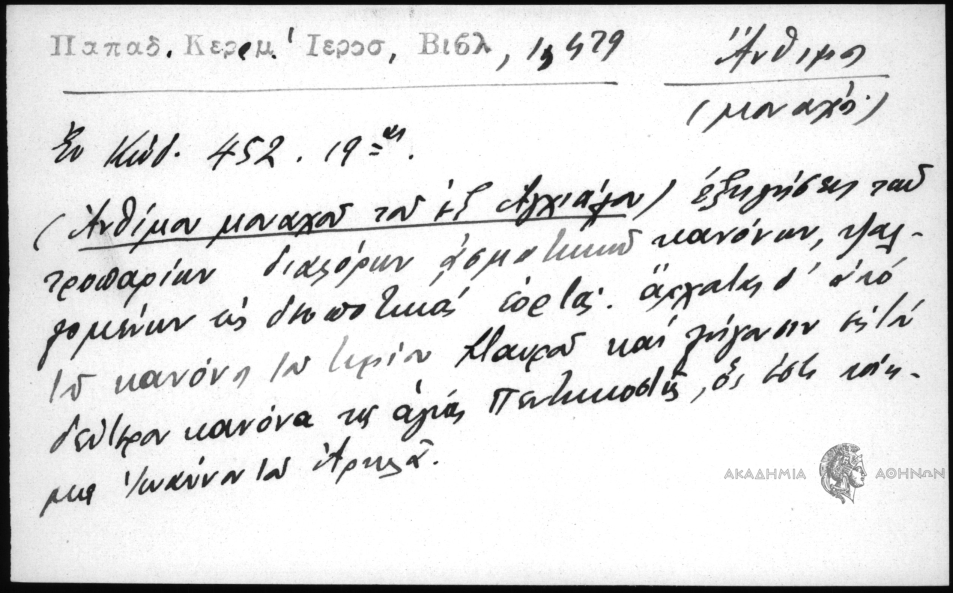 Παπαδ. Κερεμ. Ἱεροσ, Βιβλ, 1, 479
Ἄνθιμος
(μοναχός)
Ἐν Κώδ. 452. 19ης.
(Ἀνθίμου μοναχοῦ τοῦ ἐξ Ἀγχιάλου) ἐξηγήσεις τῶν
τροπαρίων διαφόρων ᾀσματικῶν κανόνων, ψαλ-
λομένων εἰς δεσποτικάς ἑορτάς. ἄρχεται δ' ἀπό
τοῦ κανόνος τοῦ τιμίου Σταυροῦ καί λήγουσιν εἰς τόν
δεύτερον κανόνα τῆς ἁγίας Πεντηκοστῆς, ὅς ἐστι ποίη-
μα Ἰωάννου τοῦ Ἀρκλᾶ.
ΑΚΑΔΗΜΙΑ ΑΘΗΝΩΝ